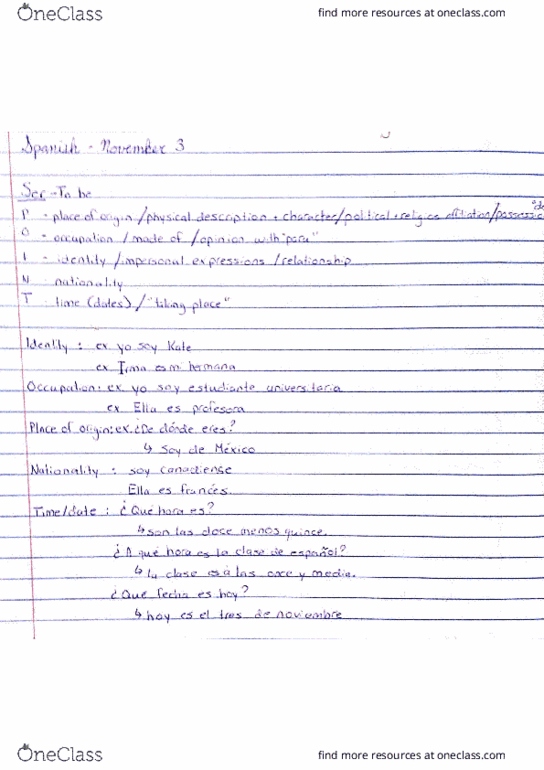 OneClass
find more resources at oneclass.com
Spanish - November 3
Ser - To be
P - place of origin/physical description + character/political + religios afiliation/possessio "de
O - occupation / made of / opinion with "para"
I - identity / impersonal expressions / relationship
N - nationality
T - time (dates) / "taking place"
Identity : ex yo soy Kate
ex Irma es mi hermana
Occupation: ex. yo soy estudiante universitaria
ex Ella es profesora
Place of origin: ex. ¿De dónde eres?
↳ Soy de México
Nationality : soy canadiense
Ella es francés.
Time/date : ¿Qué hora es?
↳ son las doce menos quince.
¿A qué hora es la clase de español?
↳ la clase es a las once y media.
¿Qué fecha es hoy?
↳ hoy es el tres de noviembre
OneClass
find more resources at oneclass.com